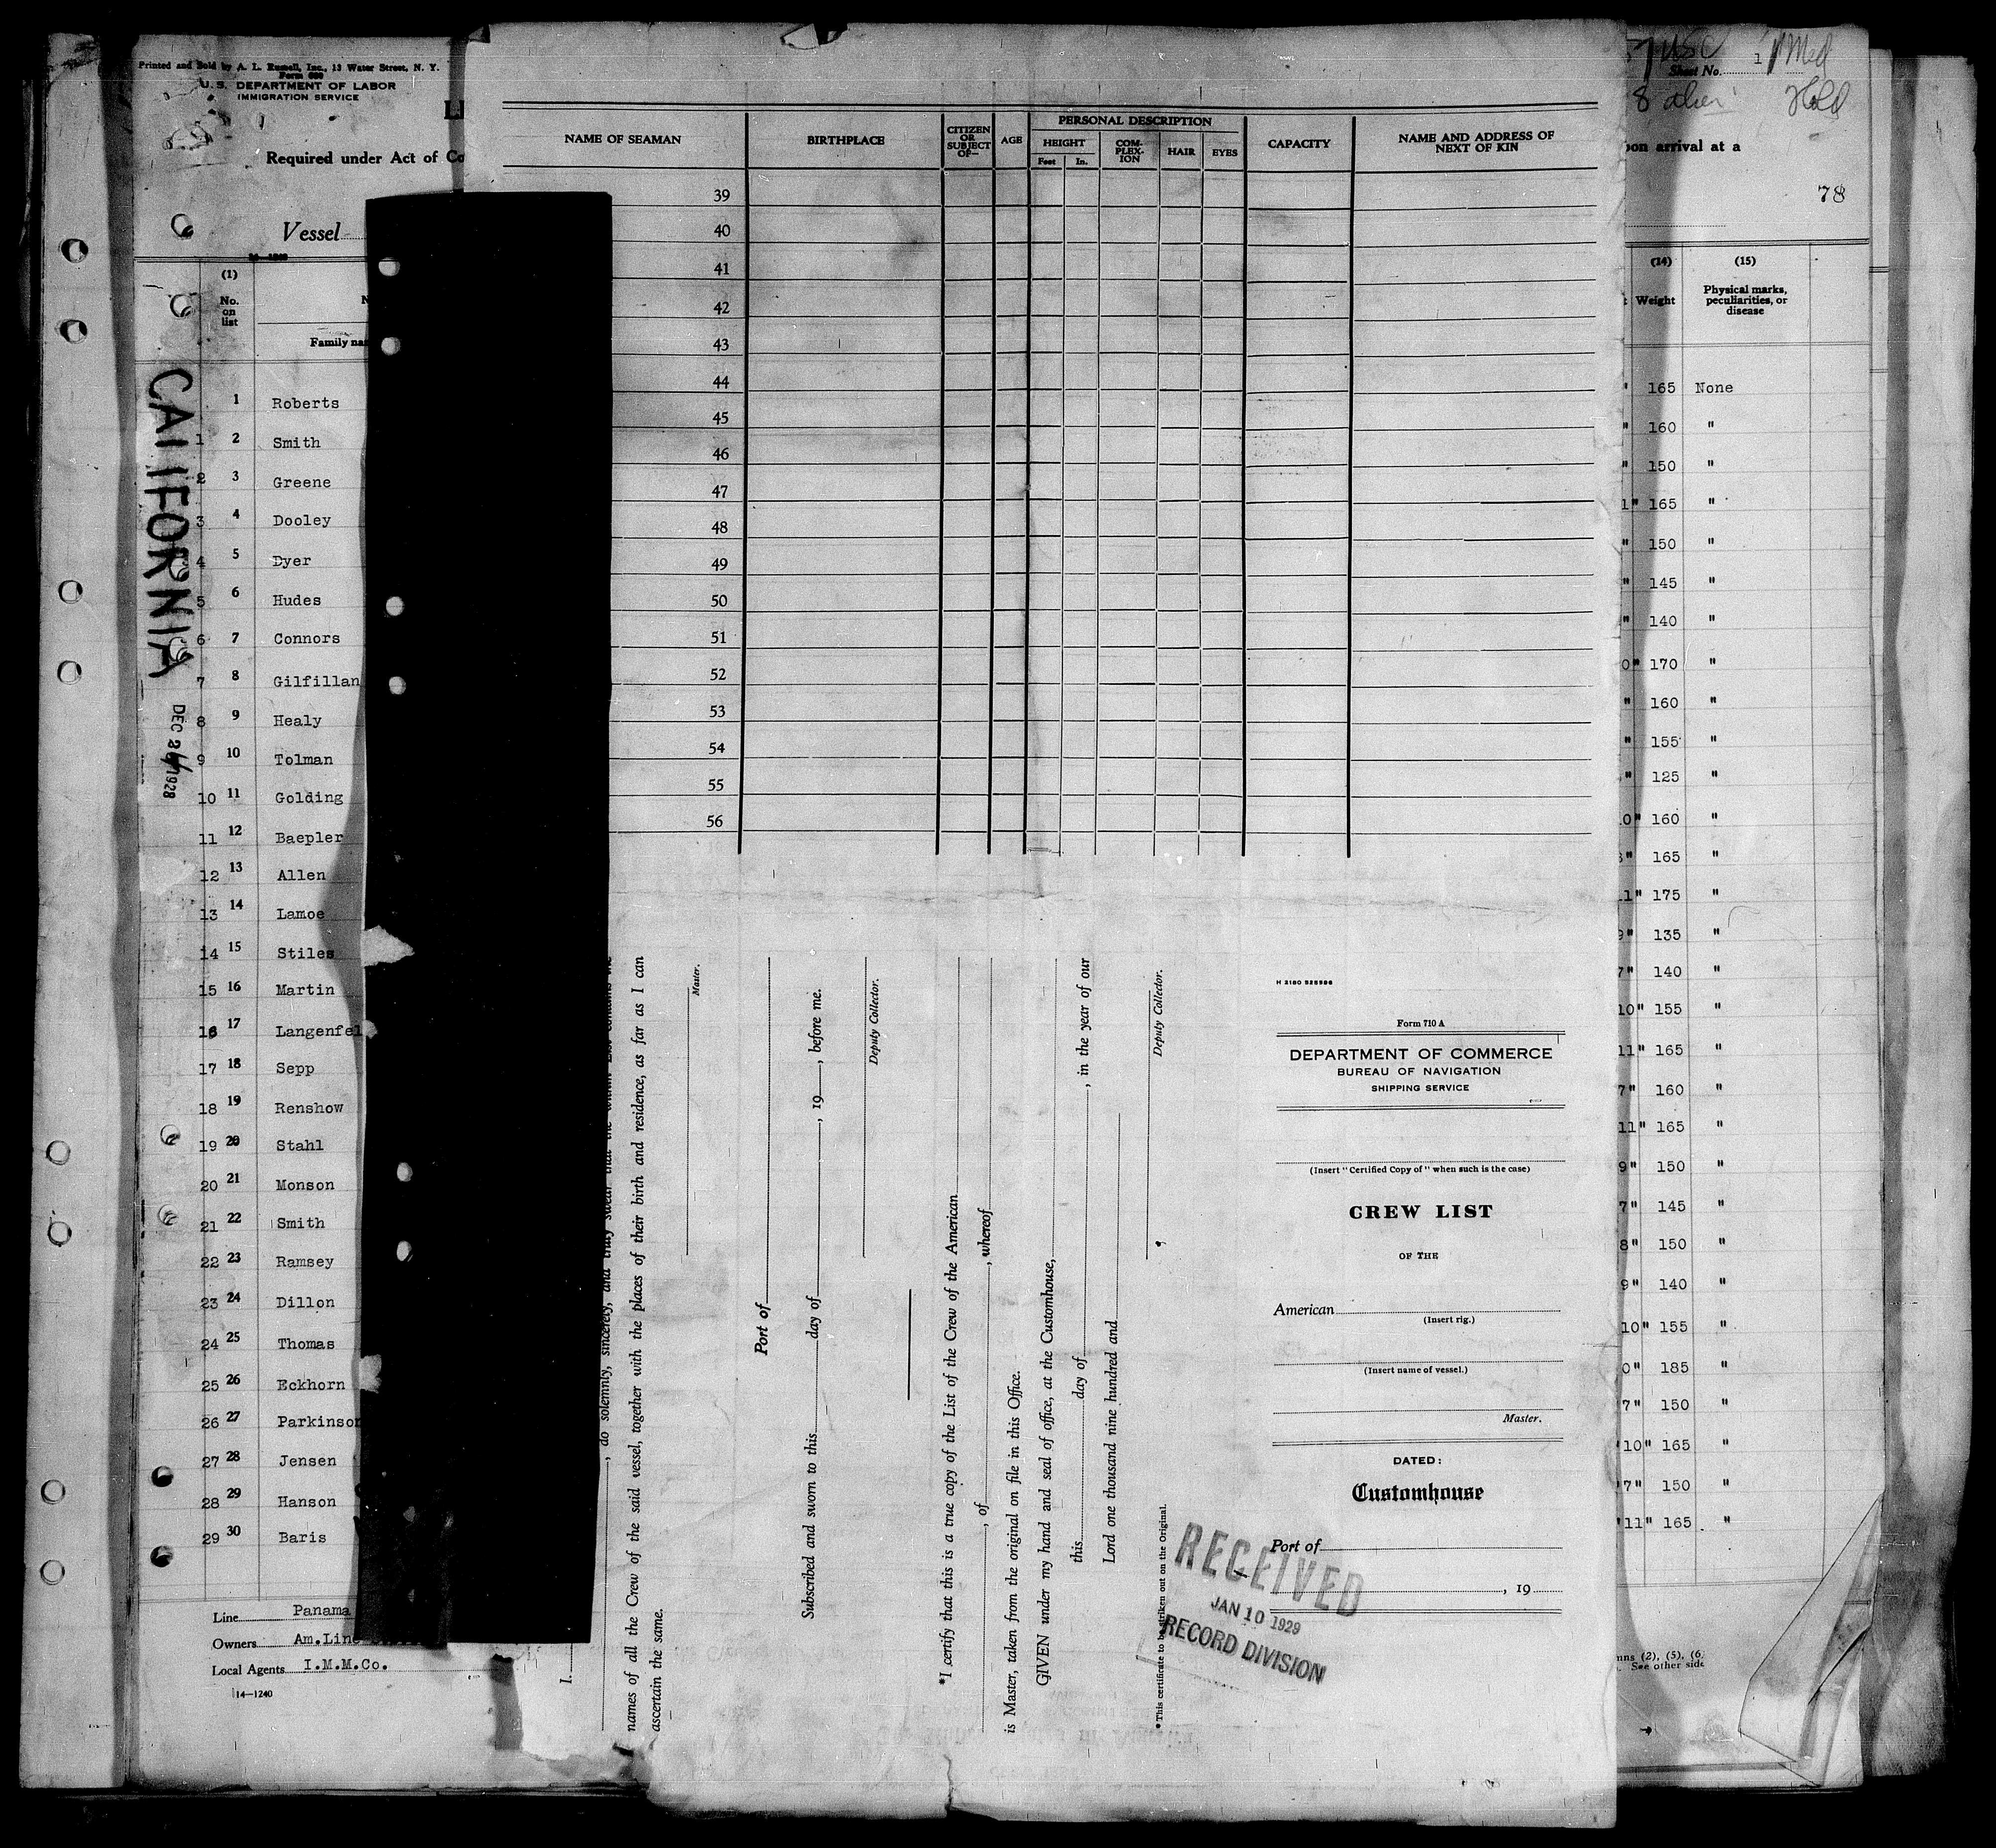 Printed and Sold by A. L. Russell, Inc., 13 Water Street, N. Y.
Form 680
U. S. DEPARTMENT OF LABOR
IMMIGRATION SERVICE
Required under Act of Co
Vessel
14—1240
(1)
No. on list
Family na
CALIFORNIA
DEC 26 1928
1 Roberts
1 2 Smith
2 3 Greene
3 4 Dooley
4 5 Dyer
5 6 Hudes
6 7 Connors
7 8 Gilfillan
8 9 Healy
9 10 Tolman
10 11 Golding
11 12 Baepler
12 13 Allen
13 14 Lamoe
14 15 Stiles
15 16 Martin
16 17 Langenfel
17 18 Sepp
18 19 Renshow
19 20 Stahl
20 21 Monson
21 22 Smith
22 23 Ramsey
23 24 Dillon
24 25 Thomas
25 26 Eckhorn
26 27 Parkinson
27 28 Jensen
28 29 Hanson
29 30 Baris
Line Panama
Owners Am.Line
Local Agents I.M.M.Co.
14—1240
NAME OF SEAMAN
BIRTHPLACE
CITIZEN OR SUBJECT OF—
AGE
PERSONAL DESCRIPTION
HEIGHT
Feet In.
COM-PLEX-ION
HAIR
EYES
CAPACITY
NAME AND ADDRESS OF NEXT OF KIN
39
40
41
42
43
44
45
46
47
48
49
50
51
52
53
54
55
56
I
, do solemnly, sincerely, and truly swear that the within List contains the
names of all the Crew of the said vessel, together with the places of their birth and residence, as far as I can
ascertain the same.
Master.
Port of
Subscribed and sworn to this day of , 19 , before me.
Deputy Collector.
*I certify that this is a true copy of the List of the Crew of the American
, of , whereof
is Master, taken from the original on file in this Office.
GIVEN under my hand and seal of office, at the Customhouse,
this day of , in the year of our
Lord one thousand nine hundred and
Deputy Collector.
*This certificate to be striken out on the Original.
Form 710 A
DEPARTMENT OF COMMERCE
BUREAU OF NAVIGATION
SHIPPING SERVICE
(Insert "Certified Copy of" when such is the case)
CREW LIST
OF THE
American
(Insert rig.)
(Insert name of vessel.)
Master.
DATED:
Customhouse
Port of
, 19
RECEIVED
JAN 10 1929
RECORD DIVISION
Sheet No. 1
pon arrival at a
78
(14) (15)
Weight
Physical marks, peculiarities, or disease
" 165 None
" 160 "
" 150 "
1" 165 "
" 150 "
" 145 "
" 140 "
0" 170 "
" 160 "
" 155 "
" 125 "
10" 160 "
" 165 "
11" 175 "
9" 135 "
7" 140 "
10" 155 "
11" 165 "
7" 160 "
11" 165 "
9" 150 "
7" 145 "
8" 150 "
9" 140 "
10" 155 "
0" 185 "
7" 150 "
10" 165 "
7" 150 "
11" 165 "
mns (2), (5), (6
See other side